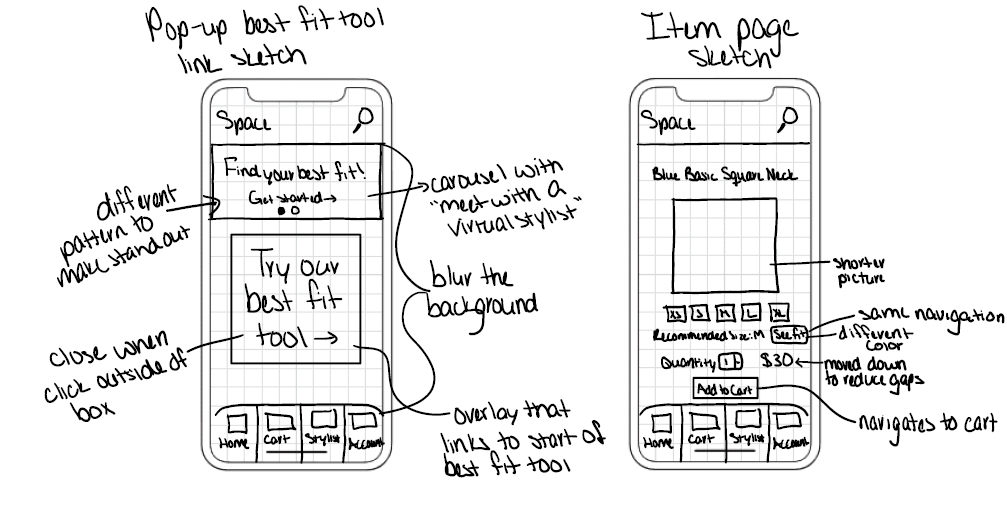 Pop-up best fit tool
link sketch
Space
Find your best fit!
Get started→
different
pattern to
make standout
→carousel with
"meet with a
virtual stylist"
Try our
best fit
tool →
blur the
background
close when
click outside of
box
overlay that
links to start of
best fit tool
Home Cart Stylist Account
Item page
sketch
Space
Blue Basic Square Neck
shorter
picture
XS S M L XL
Recommended Size: M See fit
same navigation
different
color
Quantity 1 $30
moved down
to reduce gaps
Add to Cart
navigates to cart
Home Cart Stylist Account